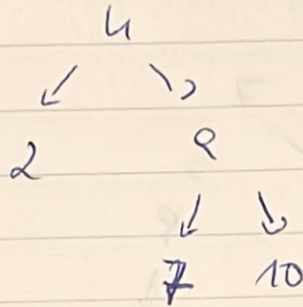 4
2 9
7 10